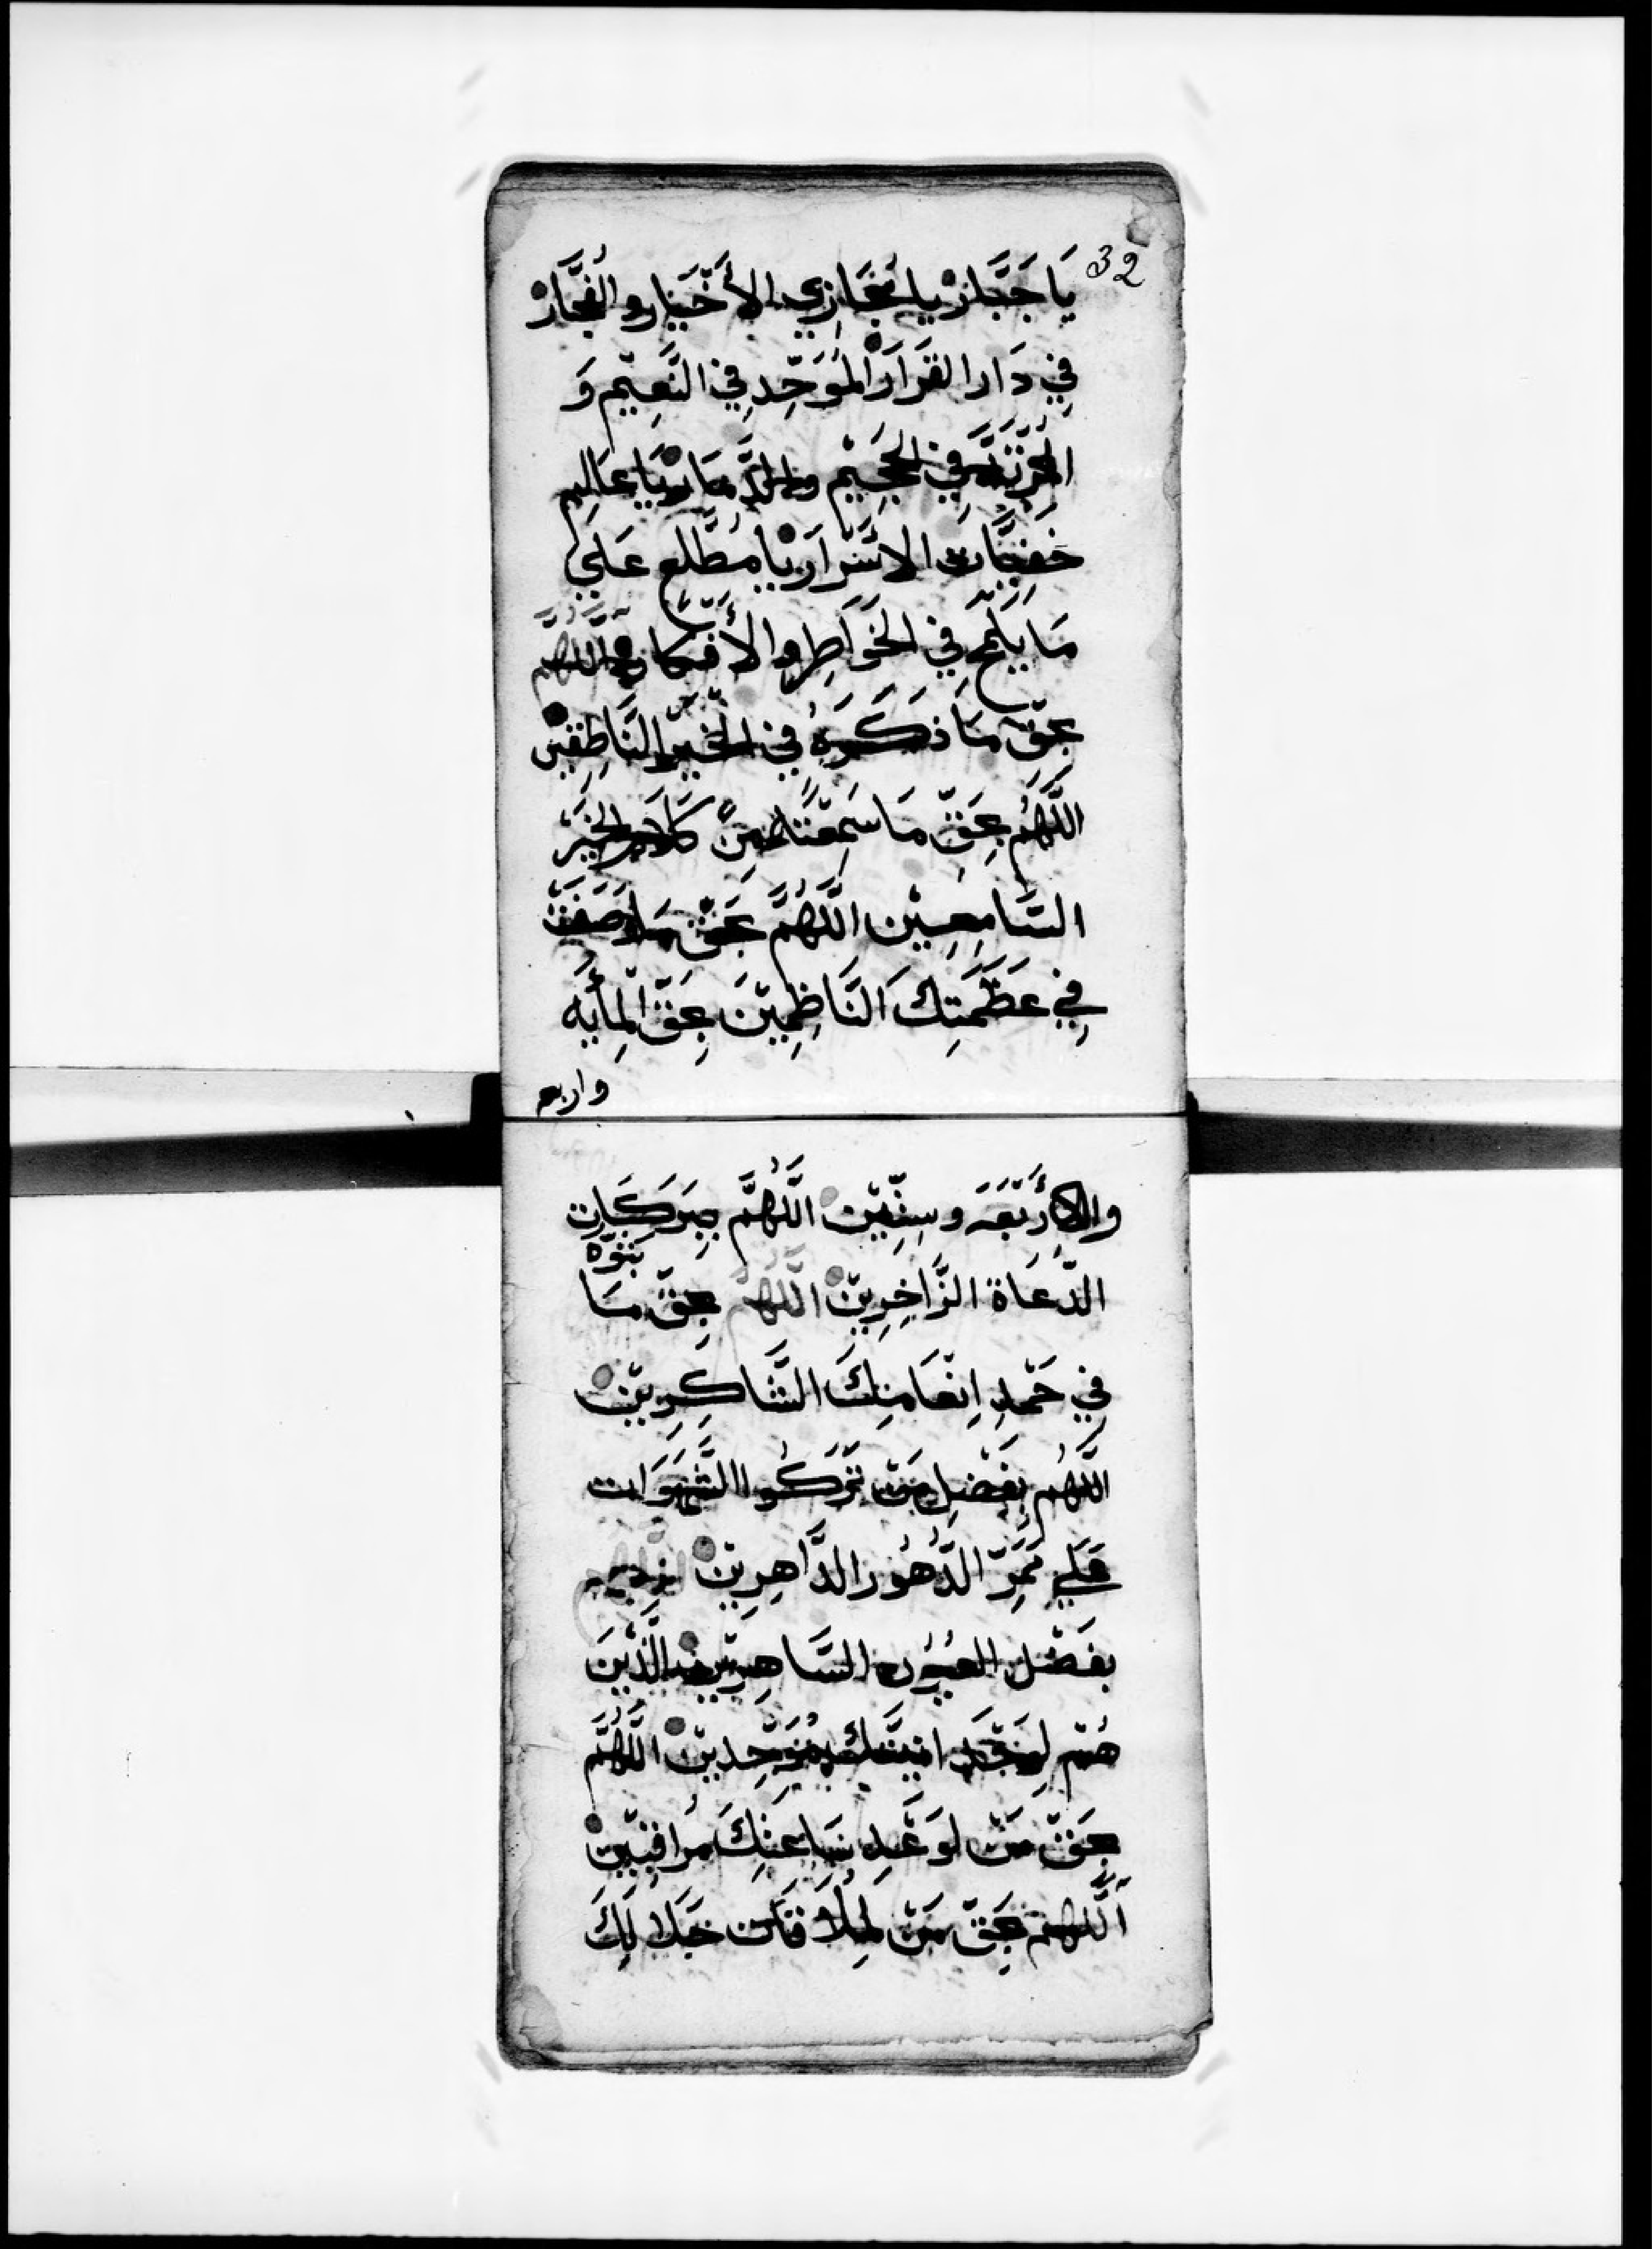 32
يَا جَبَّارْ يا مُجَازِي الأَخْيَار و الفُجَّارْ
فِي دَار القَرَارْ المُوَحِّد فِي النَّعِيْم وَ
المُرْتَد فِي الجَحِيْم والدَّمَارْ يَا عَالِم
خَفِيَّات الاَسْرَارْ يا مُطَّلِع عَلي
مَا يَلِج فِي الخَوَاطِر و الأَفْكَار اللَّهُمَّ
بحَقّ مَا ذَكَرَهُ فِي الخَيْر النَّاطِقِيْن
اللَّهُم بِحَقّ مَا سَمِعْتَهُ مِنْ كَلَام الخَيْر
السَّامِعِيْن اللَّهُمَّ بحَقّ مَا وَصَفَتْ
فِي عَظَمَتِكَ النَّاظِمِيْنَ بِحَقّ المِأيَه
واربع
والاَرْبَعَه وسِتِّيْن اللَّهُمَّ بِبَرَكَات
الدُّعَاة الزَّاخِرِيْنْ اللَّهُم بِحَقّ مَا بتوّه
فِي حَمْدِ اِنْعَامِكَ الشَّاكِرِيْنْ
اللَّهُم بِفَضْلِ مَنْ تَرَكُوا الشَّهَوَات
عَلي مَمَرّ الدُّهُور الدَّاهِرِيْنْ
بفَضْل العُيُون السَّاهِرِيْن الَّذِيْنَ
هُمْ مُوَحِّدِيْنْ اللَّهُمَّ
بحَقّ مَنْ لوَعْدِ سَاعَتِكَ مُرَاقِبِيْنْ
اللَّهُمَّ بحَقّ مَنْ لِمُلَاقَات جَلَالِكَ